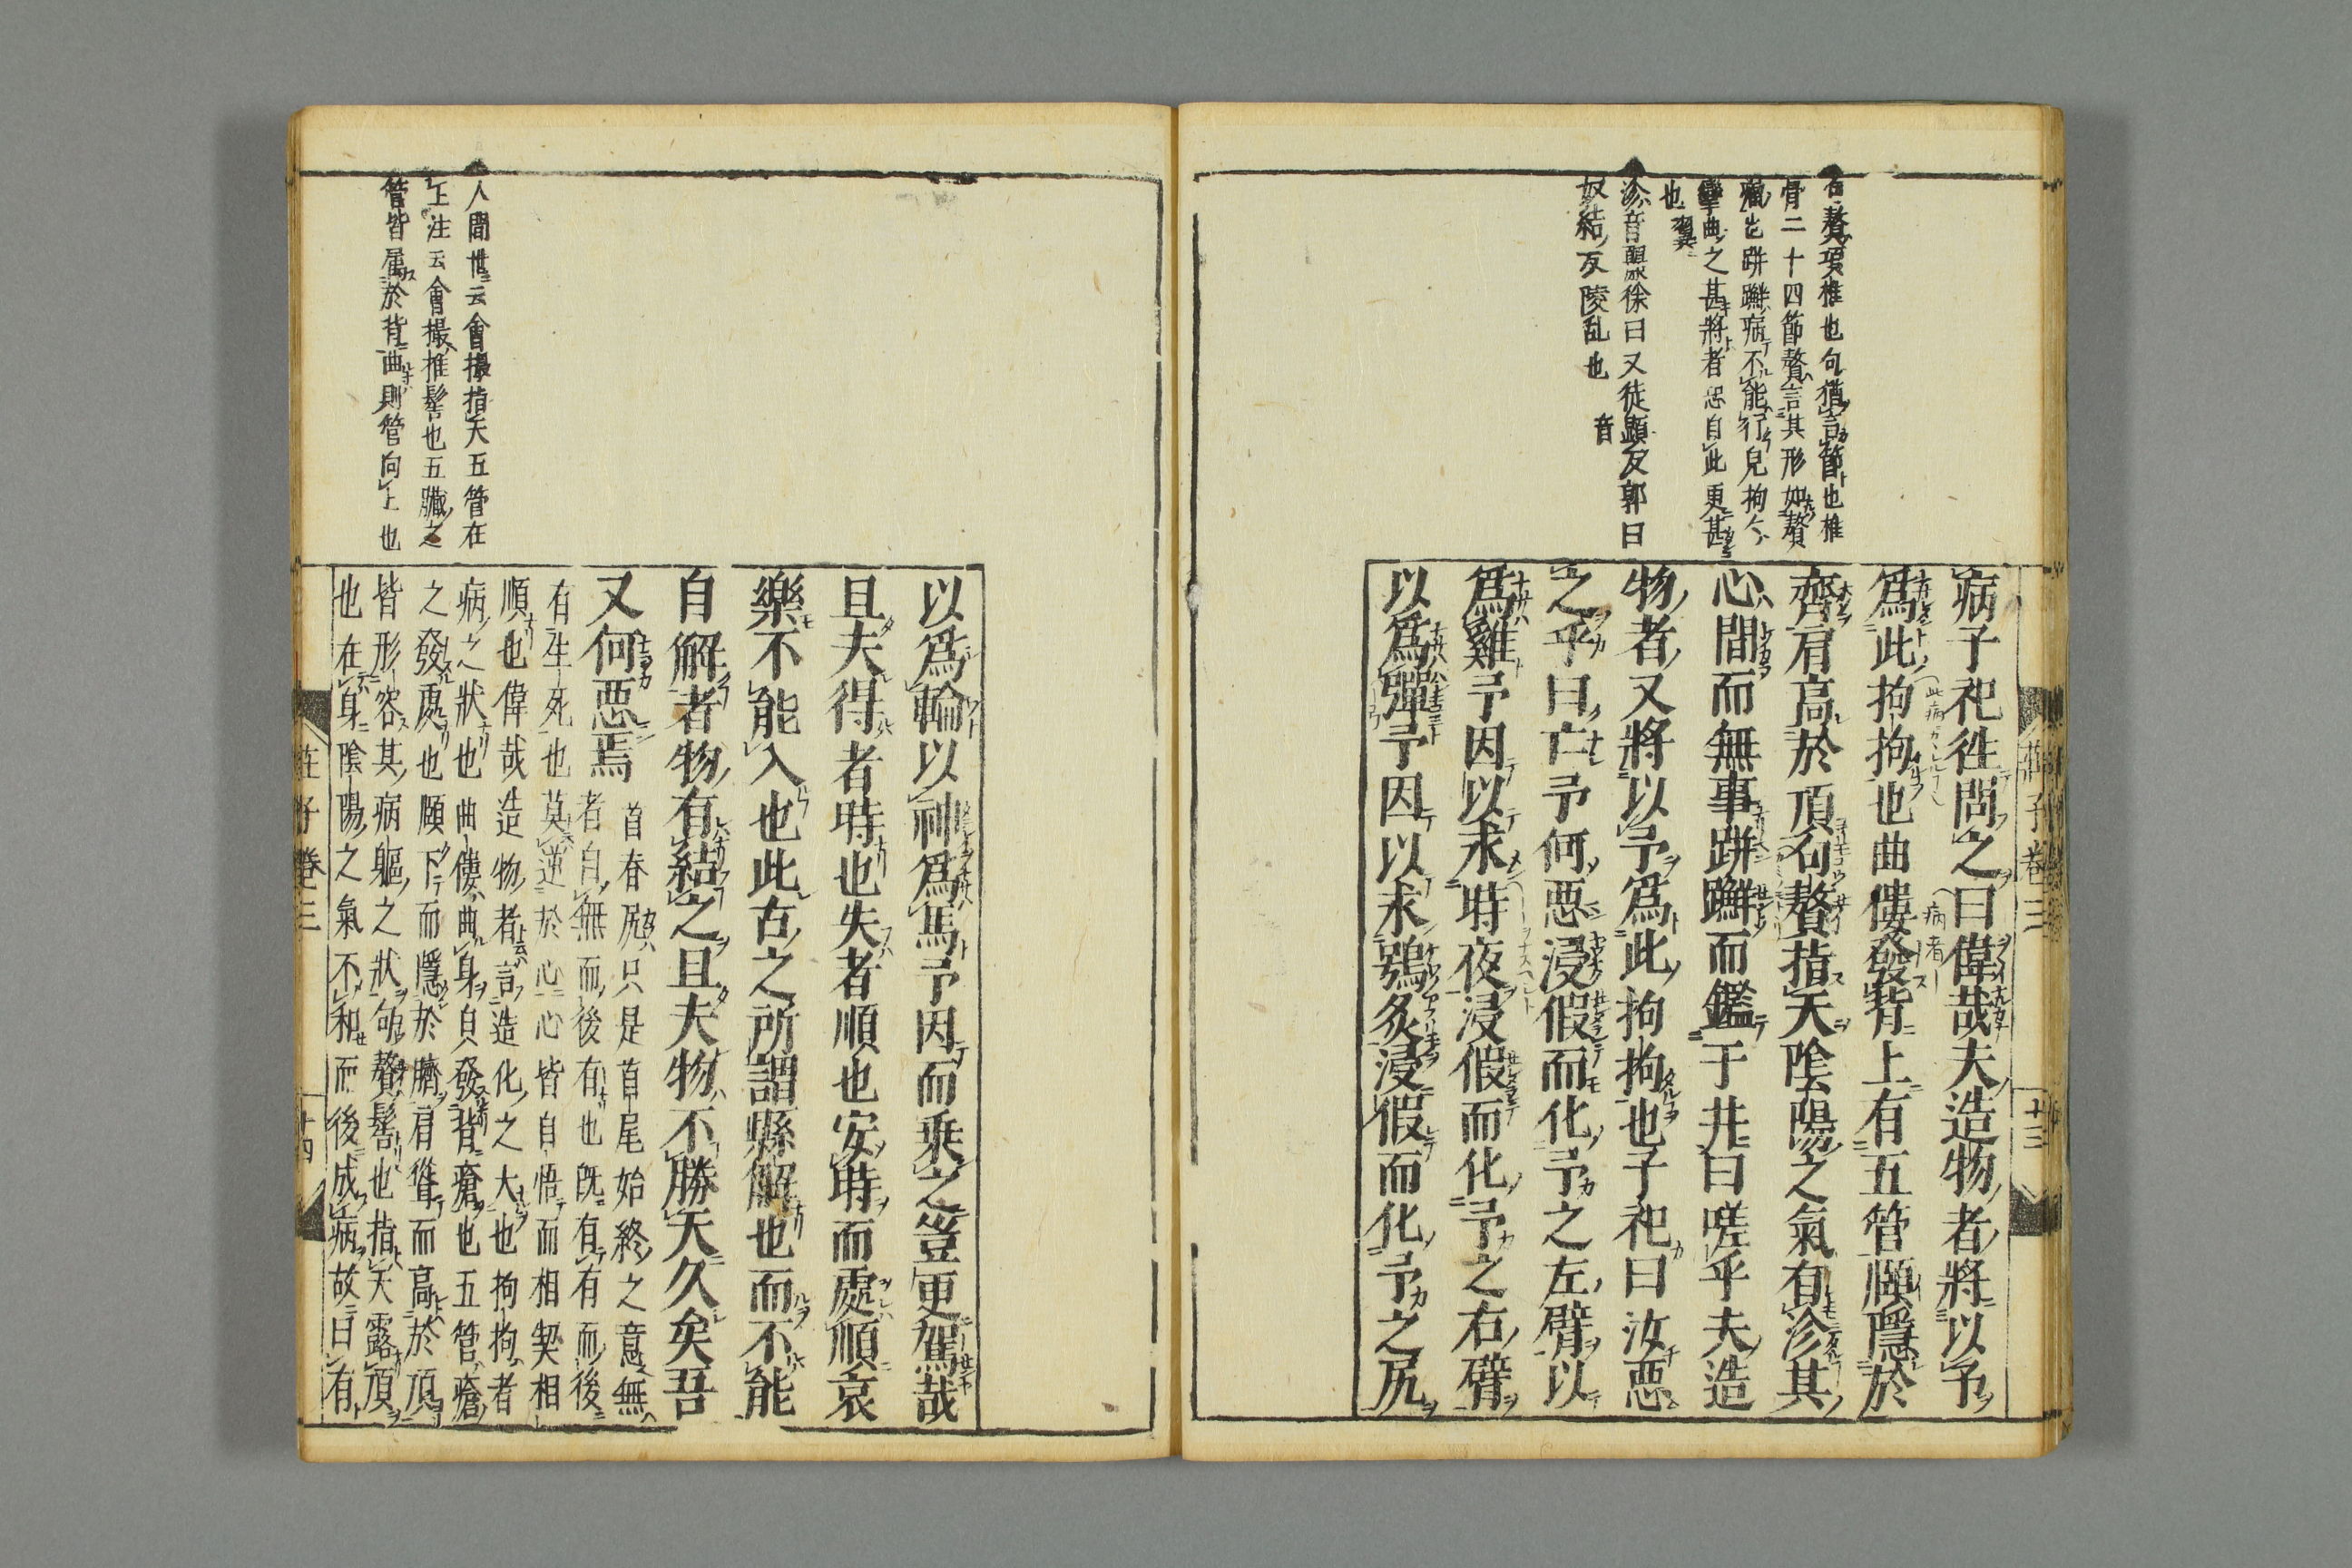 句贅項椎也句猶言節也椎
骨二十四節贅言其形如贅
癘也跰𨇤病不能行皃拘々
攣曲之甚將者恐自此更甚
也 翼
沴音麗徐曰又徒顯反郭曰
奴結反陵乱也 音
病子祀往問之曰偉哉夫造物者將以予
爲此拘拘也曲僂發背上有五管頤隱於
齊肩高於頂句贅指天陰陽之氣有沴其
心間而無事跰𨇤而鑑于井曰嗟乎夫造
物者又將以予爲此拘拘也子祀曰汝惡
之乎曰亡予何惡浸假而化予之左臂以
爲雞予因以求時夜浸假而化予之右臂
以爲彈予因以求鴞炙浸假而化予之尻
莊子卷三 十三
人間世云會撮指天五管在
上注云會撮推髻也五臟之
管皆属於背曲則管向上也
以爲輪以神爲馬予因而乘之豈更駕哉
且夫得者時也失者順也安時而處順哀
樂不能入也此古之所謂縣解也而不能
自解者物有結之且夫物不勝天久矣吾
又何惡焉 首春尻只是首尾始終之意無
者自無而後有也既有有而後
有生死也莫逆於心心皆自悟而相契相
順也偉哉造物者言造化之大也拘拘者
病之狀也曲僂曲身自發背瘡也五管瘡
之發處也頤下而隱於臍肩聳而高於頂
皆形容其病軀之狀句贅髻也指天露頂
也在身陰陽之氣不和而後成病故曰有
莊子卷三 十四